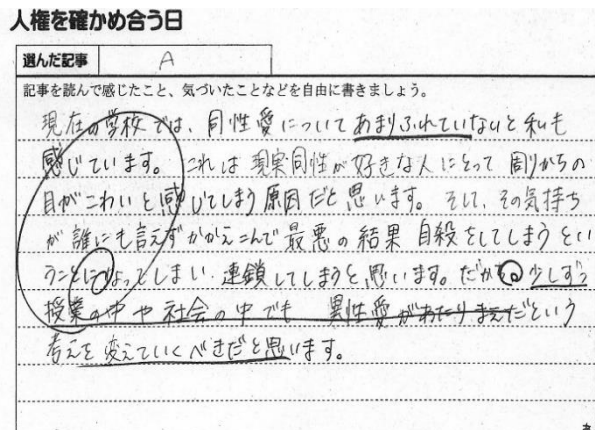 人権を確かめ合う日
選んだ記事 A
記事を読んで感じたこと、気づいたことなどを自由に書きましょう。
現在の学校では、同性愛についてあまりふれていないと私も
感じています。これは現実同性が好きな人にとって周りからの
目がこわいと感じてしまう原因だと思います。そして、その気持ち
が誰にも言えずかかえこんで最悪の結果自殺をしてしまうとい
うことになってしまい、連鎖してしまうと思います。だから少しずつ
授業の中や社会の中でも異性愛があたりまえだという
考えを変えていくべきだと思います。